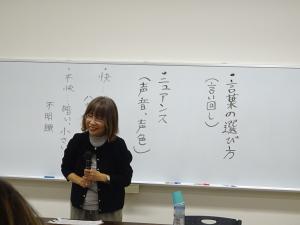 ・言葉の選び方
(言い回し)
・ニュアンス
(声音、声色)
・快
・不快 暗い 小さい
不明瞭